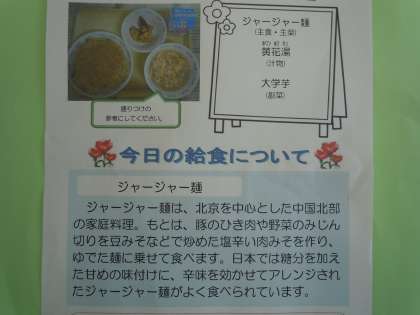 盛りつけの
参考にしてください。
ジャージャー麺
(主食・主菜)
黄花湯
(汁物)
大学芋
(副菜)
今日の給食について
ジャージャー麺
ジャージャー麺は、北京を中心とした中国北部
の家庭料理。もとは、豚のひき肉や野菜のみじん
切りを豆みそなどで炒めた塩辛い肉みそを作り、
ゆでた麺に乗せて食べます。日本では糖分を加え
た甘めの味付けに、辛味を効かせてアレンジされ
たジャージャー麺がよく食べられています。